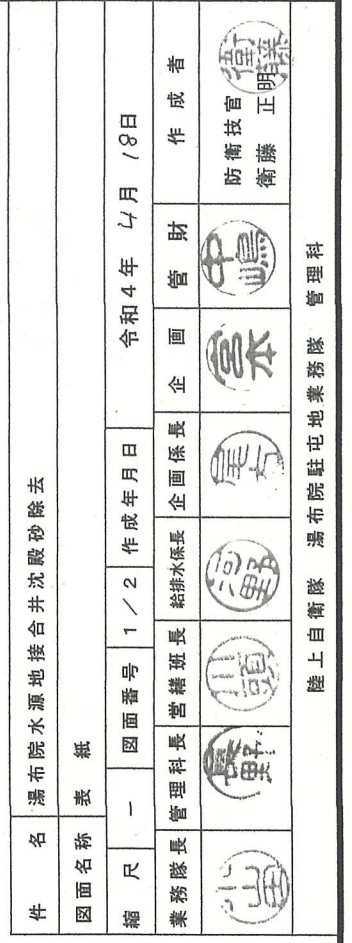 件名 湯布院水源地接合井沈殿砂除去
図面名称 表紙
縮尺 ー 図面番号 1／2 作成年月日 令和4年4月18日
業務隊長 管理科長 営繕班長 給排水係長 企画係長 企画 管財 作成者
長野 川頭 河野 尾方 宮本 中嶋 防衛技官
衛藤 正明
衛藤
陸上自衛隊 湯布院駐屯地業務隊 管理科